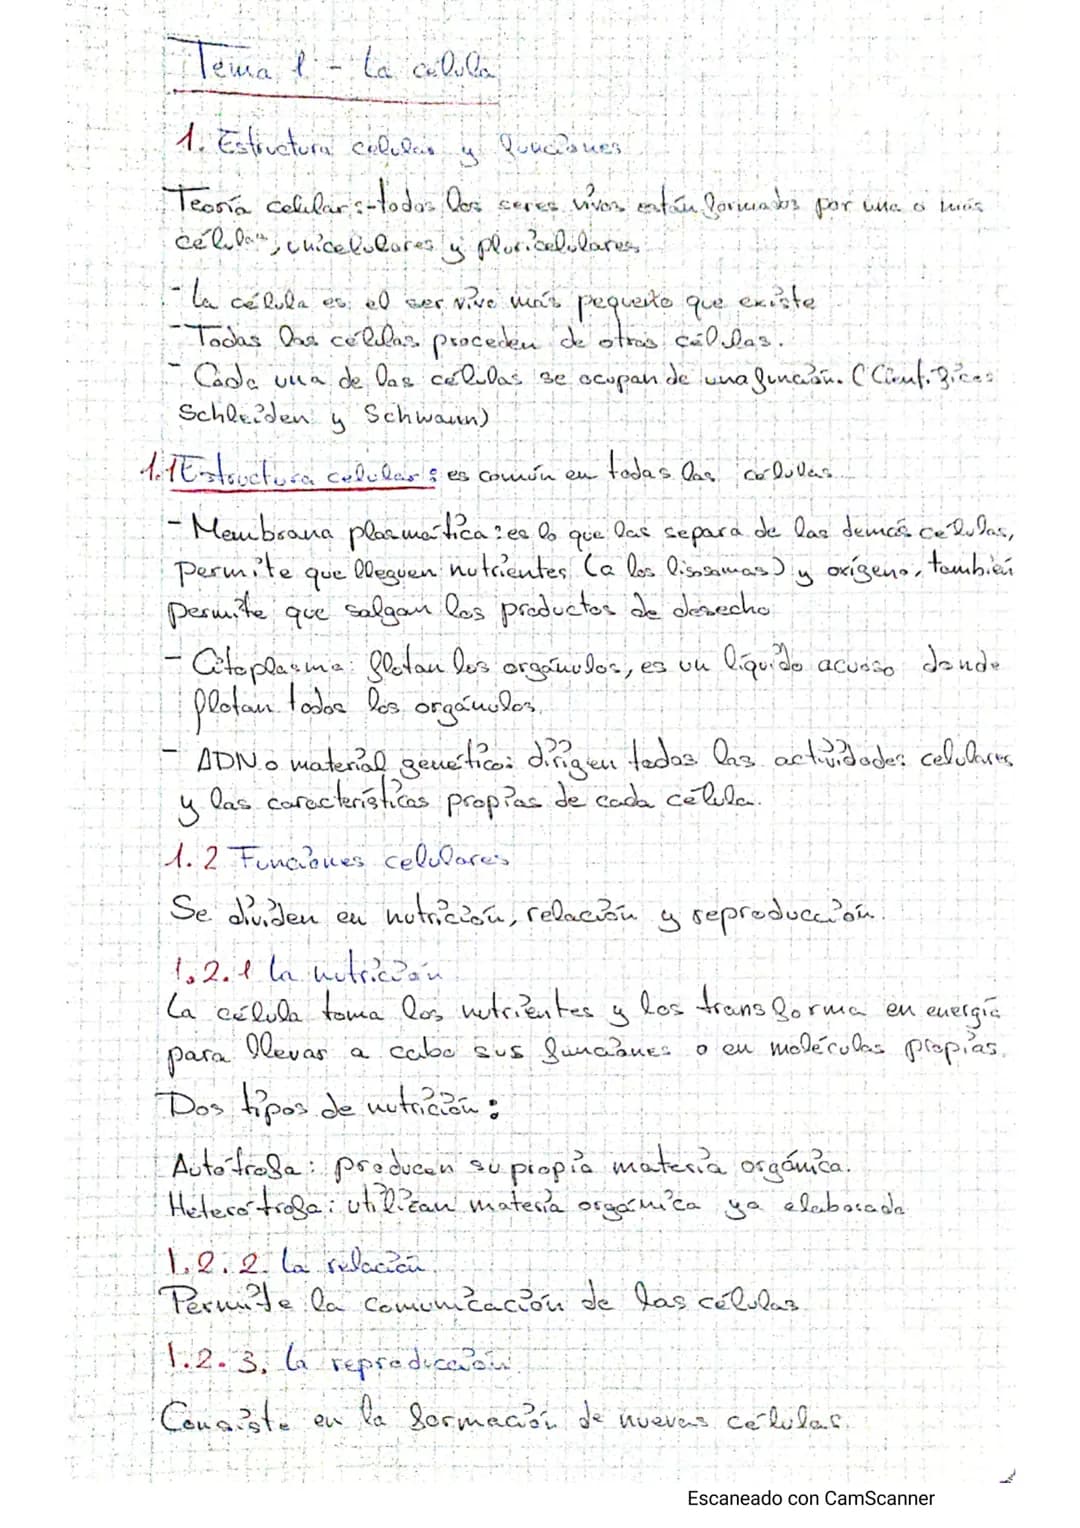 Tema 1 - La célula
1. Estructura celular y funciones
Teoría celular: -todos los seres vivos están formados por una o más
células, unicelulares y pluricelulares
- La célula es el ser vivo más pequeño que existe
- Todas las células proceden de otras células.
- Cada una de las células se ocupan de una función. (Científicos
Schleiden y Schwann)
1.1 Estructura celular: es común en todas las células.
- Membrana plasmática: es lo que las separa de las demás células,
permite que lleguen nutrientes (a los lisosomas) y oxígeno, también
permite que salgan los productos de desecho
- Citoplasma: flotan los orgánulos, es un líquido acuoso donde
flotan todos los orgánulos.
- ADN o material genético: dirigen todas las actividades celulares
y las características propias de cada célula.
1.2 Funciones celulares
Se dividen en nutrición, relación y reproducción.
1.2.1 La nutrición
La célula toma los nutrientes y los transforma en energía
para llevar a cabo sus funciones o en moléculas propias.
Dos tipos de nutrición:
Autótrofa: producen su propia materia orgánica.
Heterótrofa: utilizan materia orgánica ya elaborada
1.2.2. La relación.
Permite la comunicación de las células
1.2.3. La reproducción
Consiste en la formación de nuevas células.
Escaneado con CamScanner